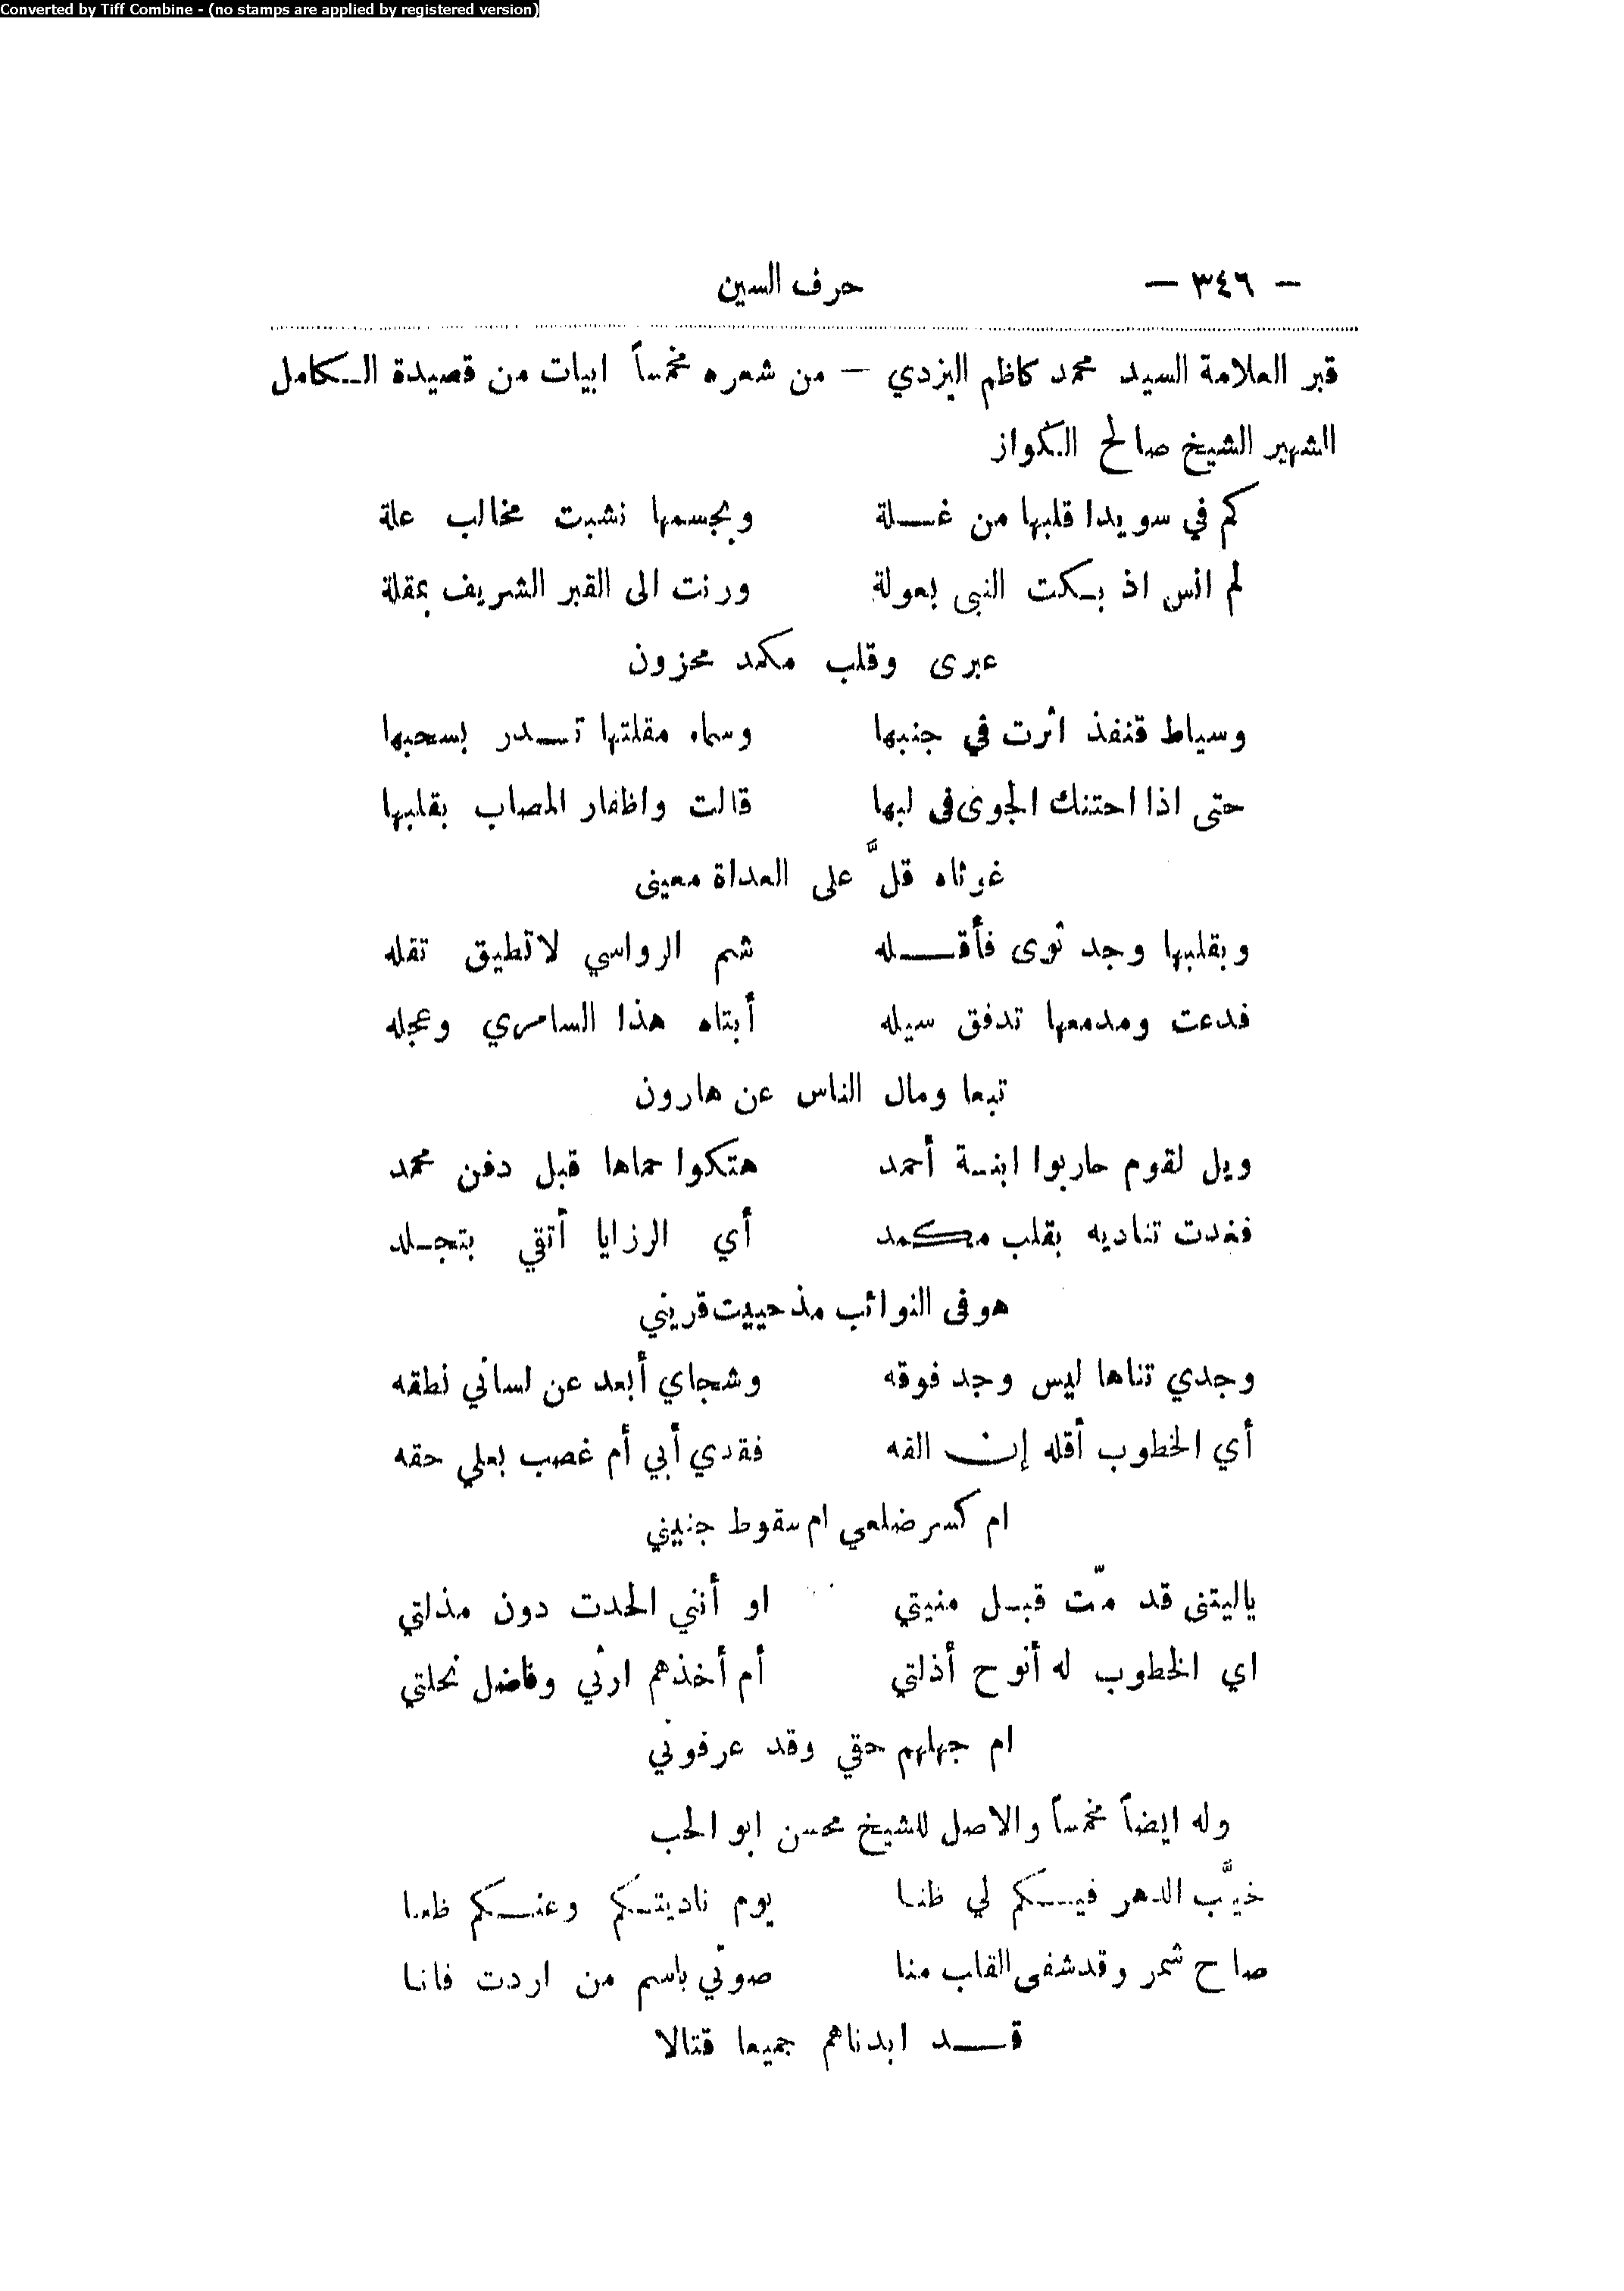 Converted by Tiff Combine - (no stamps are applied by registered version)
— ٣٤٦ — حرف السين
قبر العلامة السيد محمد كاظم اليزدي — من شعره مخمساً ابيات من قصيدة الكامل
الشهير الشيخ صالح الكواز
كم في سويدا قلبها من غلة وبجسمها نشبت مخالب علة
لم انس اذ بكت النبي بعولة ورنت الى القبر الشريف بمقلة
عبرى وقلب مكمد محزون
وسياط قنفذ اثرت في جنبها وسماء مقلتها تدر بسحبها
حتى اذا احتنك الجوى في لبها قالت واظفار المصاب بقلبها
غوثاه قلَّ على العداة معيني
وبقلبها وجد ثوى فأقله شم الرواسي لاتطيق تقله
فدعت ومدمعها تدفق سيله أبتاه هذا السامري وعجله
تبعا ومال الناس عن هارون
ويل لقوم حاربوا ابنة أحمد هتكوا حماها قبل دفن محمد
فغدت تناديه بقلب مكمد أي الرزايا أتقي بتجلد
هو في النوائب مذ حييت قريني
وجدي تناها ليس وجد فوقه وشجاي أبعد عن لساني نطقه
أي الخطوب أقله إن القه فقدي أبي أم غصب بعلي حقه
ام كسر ضلعي ام سقوط جنيني
ياليتني قد متّ قبل منيتي او أنني الحدت دون مذلتي
اي الخطوب له أنوح أذلتي أم أخذهم ارثي وفاضل نحلتي
ام جهلهم حقي وقد عرفوني
وله ايضاً مخمساً والاصل للشيخ محسن ابو الحب
خيَّب الدهر فيكم لي ظنا يوم ناديتكم وعنكم ظعنا
صاح شمر وقد شفى القلب منا صوتي باسم من اردت فانا
قد ابدناهم جميعا قتالا